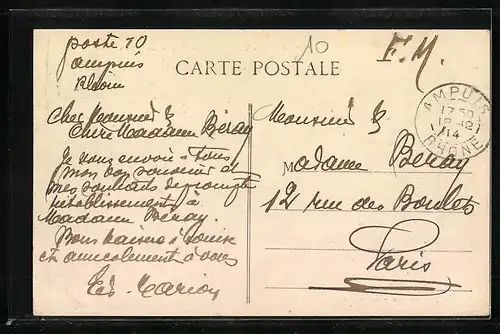 poste 10
ampuis
Rhône
10
F. M.
CARTE POSTALE
AMPUIS
17 30
18-12
14
RHÔNE
Cher Monsieur &
Chere Madame Béray
Je vous envoie a tous
mon bon souvenir et
mes souhaits de prompt
rétablissement à
Madame Béray.
Bons baisers à Louise
et amicalement à vous
Ed. Marion
Monsieur &
Madame Beray
12 rue des Boulets
Paris